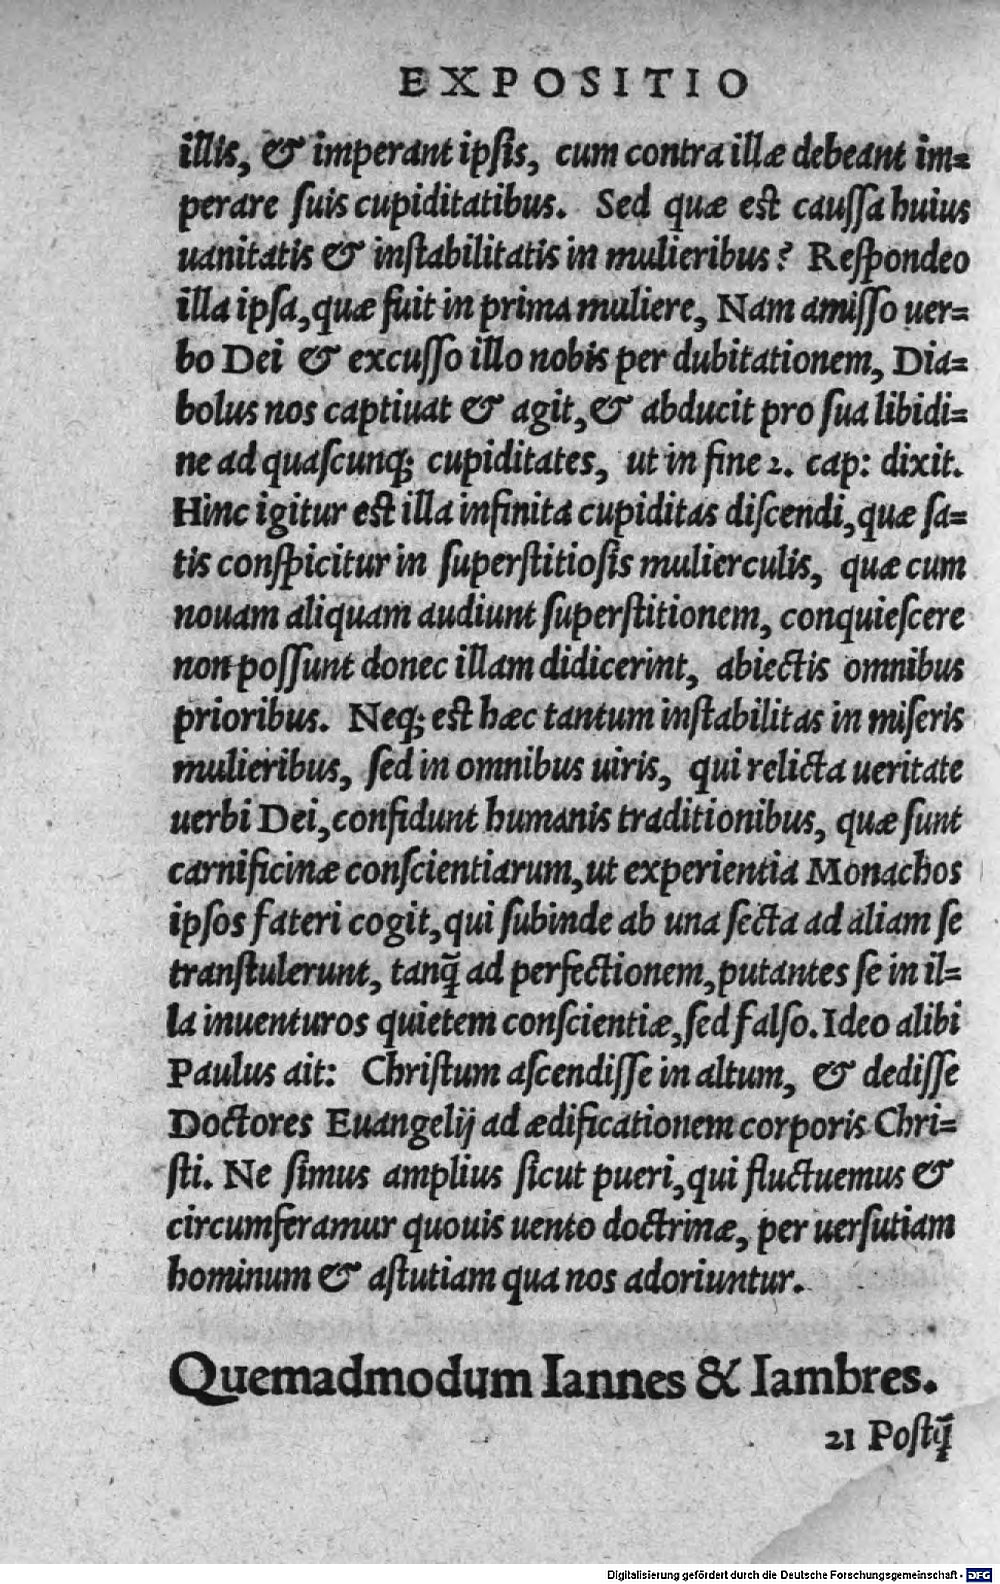 EXPOSITIO
illis, & imperant ipſis, cum contra illæ debeant im=
perare ſuis cupiditatibus. Sed quæ est cauſſa huius
uanitatis & inſtabilitatis in mulieribus? Reſpondeo
illa ipſa, quæ fuit in prima muliere, Nam amiſſo uer=
bo Dei & excuſſo illo nobis per dubitationem, Dia=
bolus nos captiuat & agit, & abducit pro ſua libidi=
ne ad quaſcunq; cupiditates, ut in fine 2. cap: dixit.
Hinc igitur est illa infinita cupiditas diſcendi, quæ ſa=
tis conſpicitur in ſuperſtitioſis mulierculis, quæ cum
nouam aliquam audiunt ſuperſtitionem, conquieſcere
non poſſunt donec illam didicerint, abiectis omnibus
prioribus. Neq; est hæc tantum inſtabilitas in miſeris
mulieribus, ſed in omnibus uiris, qui relicta ueritate
uerbi Dei, confidunt humanis traditionibus, quæ ſunt
carnificinæ conſcientiarum, ut experientia Monachos
ipſos fateri cogit, qui ſubinde ab una ſecta ad aliam ſe
tranſtulerunt, tanq̃ ad perfectionem, putantes ſe in il=
la inuenturos quietem conſcientiæ, ſed falſo. Ideo alibi
Paulus ait: Chriſtum aſcendiſſe in altum, & dediſſe
Doctores Euangelij ad ædificationem corporis Chri=
ſti. Ne ſimus amplius ſicut pueri, qui fluctuemus &
circumferamur quouis uento doctrinæ, per uerſutiam
hominum & aſtutiam qua nos adoriuntur.
Quemadmodum Iannes & Iambres.
21 Poſtq̃
Digitalisierung gefördert durch die Deutsche Forschungsgemeinschaft - DFG